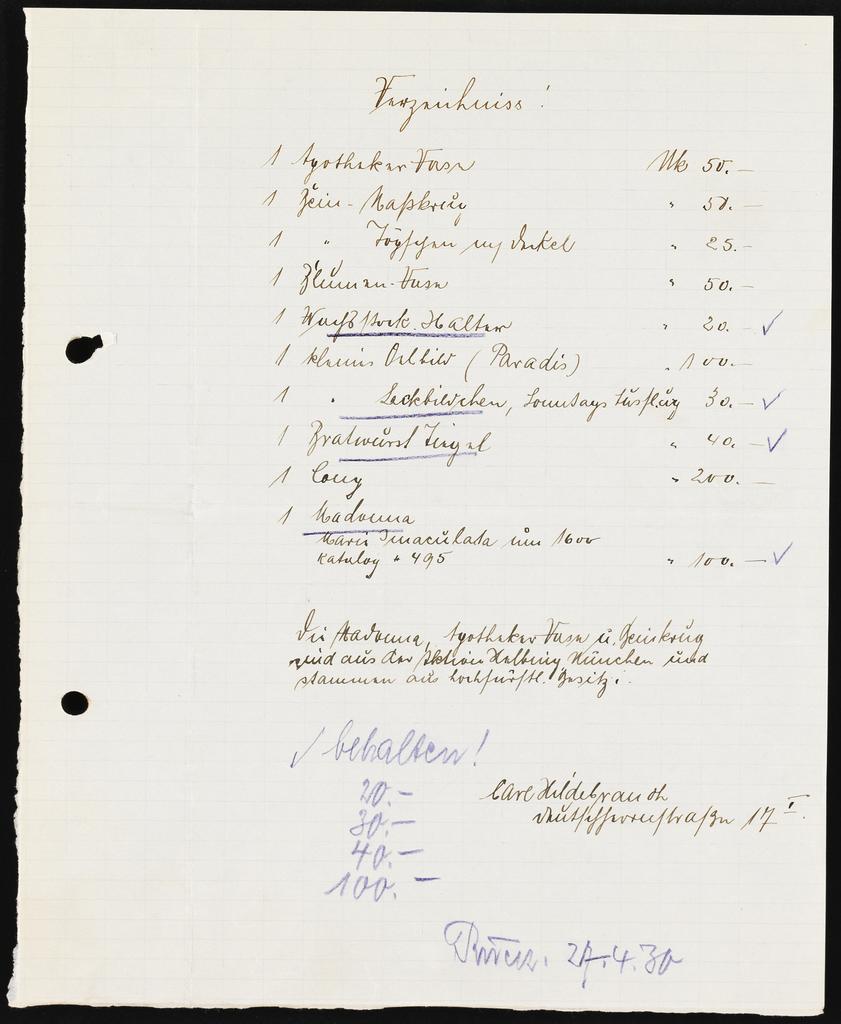 Verzeichniss!
1 Apotheker Vase Mk 50.—
1 Zein-Maßkrug " 50.—
1 " Töpfchen m/ Deckel " 25.—
1 Blumen-Vase " 50.—
1 Wachsstock-Halter " 20.— ✓
1 kleines Oelbild (Paradis) " 100.—
1 " Lackbildchen, Sonntags Ausflug 30.— ✓
1 Bratwurst Tiegel " 40.— ✓
1 " 200.—
1 Madonna
Maria Imaculata um 1600
Katalog " 495 " 100.— ✓
Die Madonna, Apotheker Vase u. Zeinkrug
sind aus der Aktion Helbing München und
stammen aus hochfürstl. Besitz.
✓ behalten!
20.—
30.—
40.—
100.—
Carl Hildebrandt
Deutschherrnstraße 17 I.
27.4.30